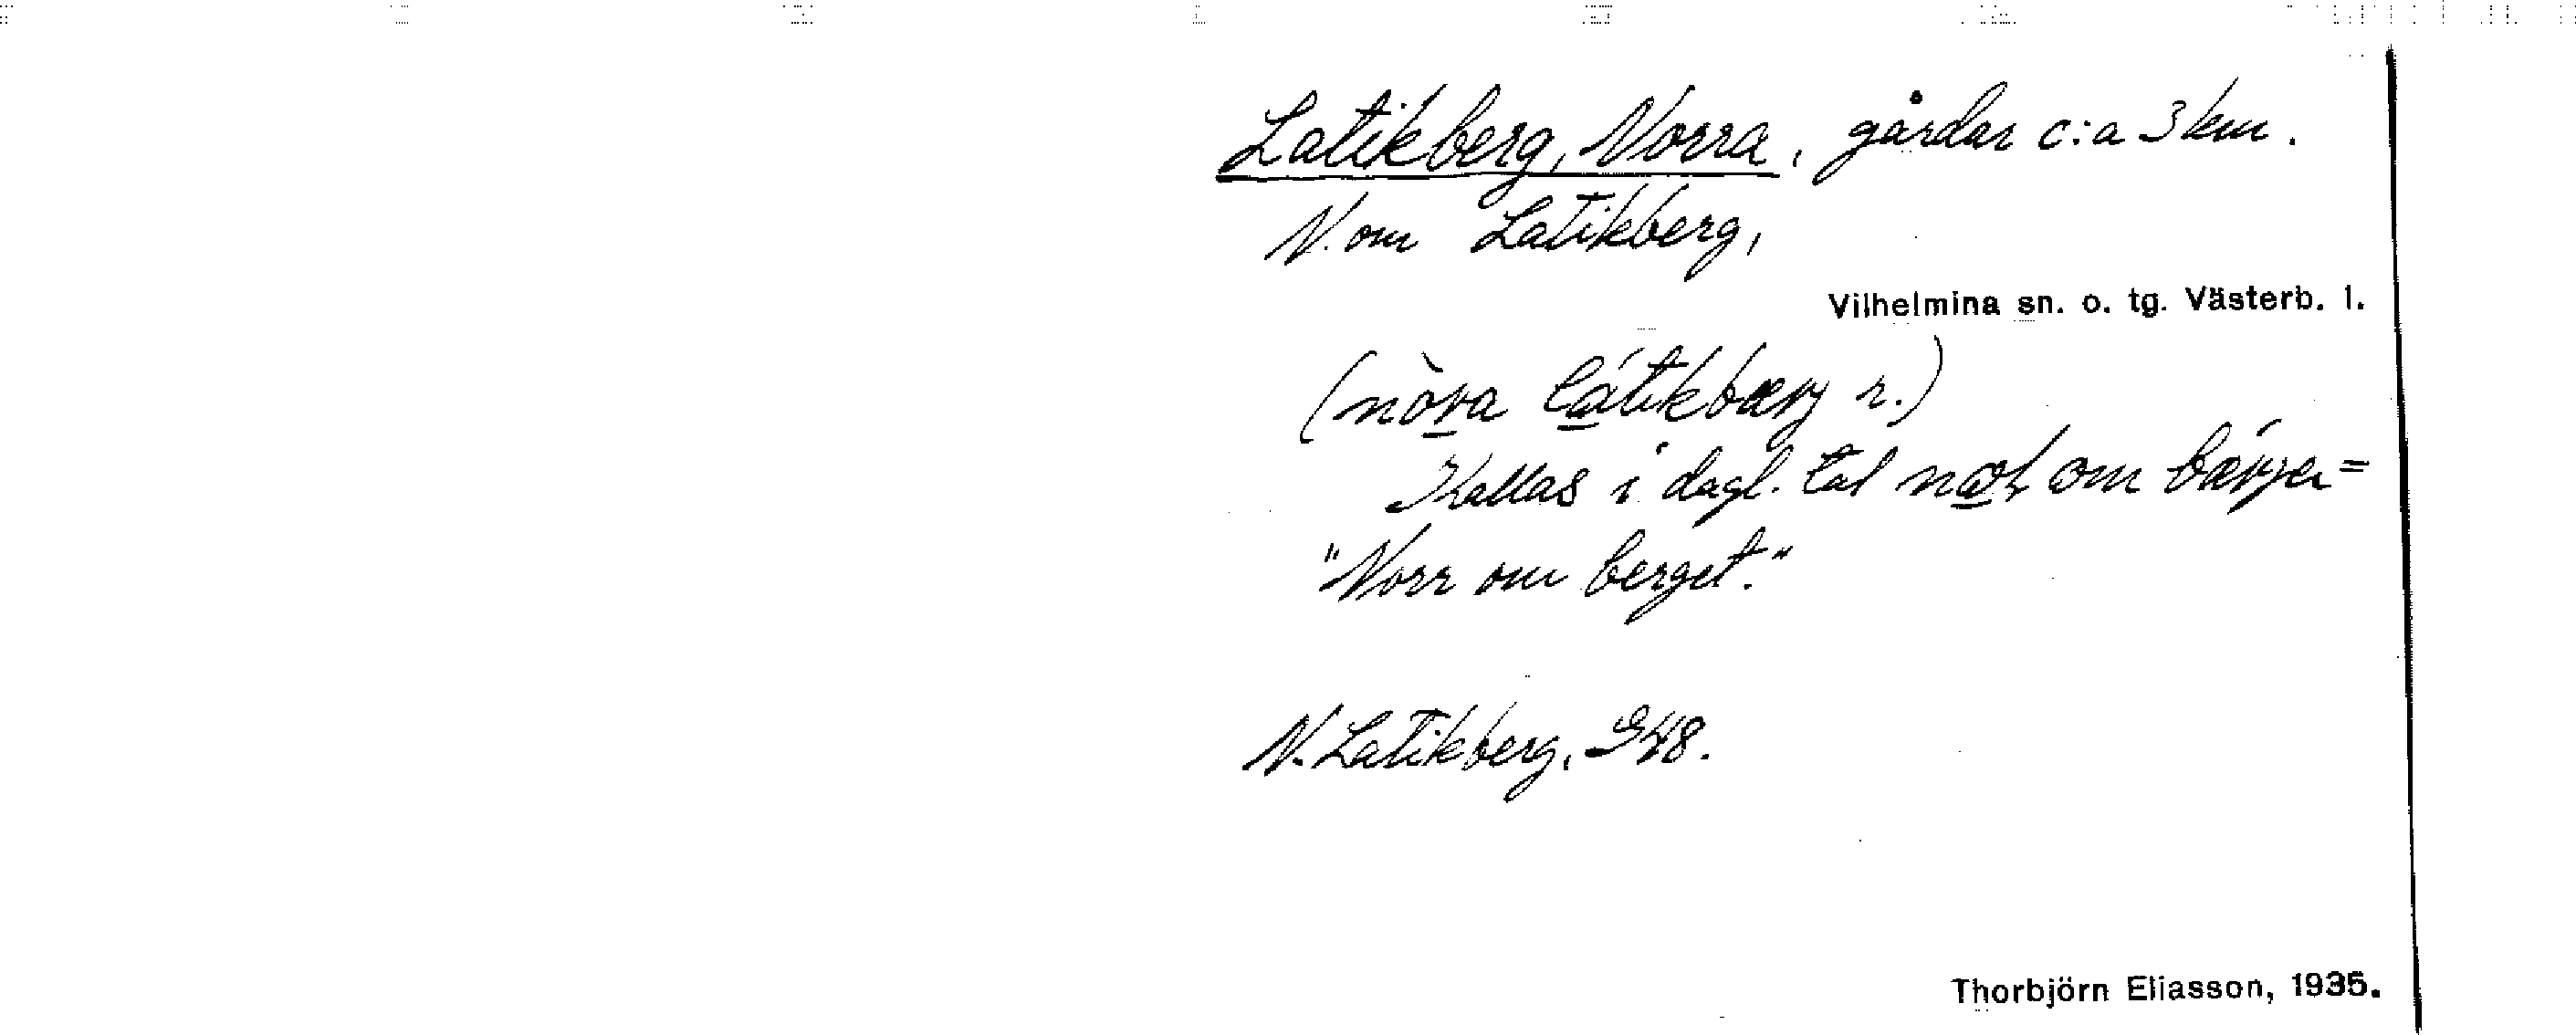 Latikberg, Norra, gårdar c:a 3 km.
N. om Latikberg,
Vilhelmina sn. o. tg. Västerb. l.
(nòra látikbærj r.)
Kallas i dagl. tal nor om bærjer =
"Norr om berget."
N. Latikberg, 948.
Thorbjörn Eliasson, 1935.